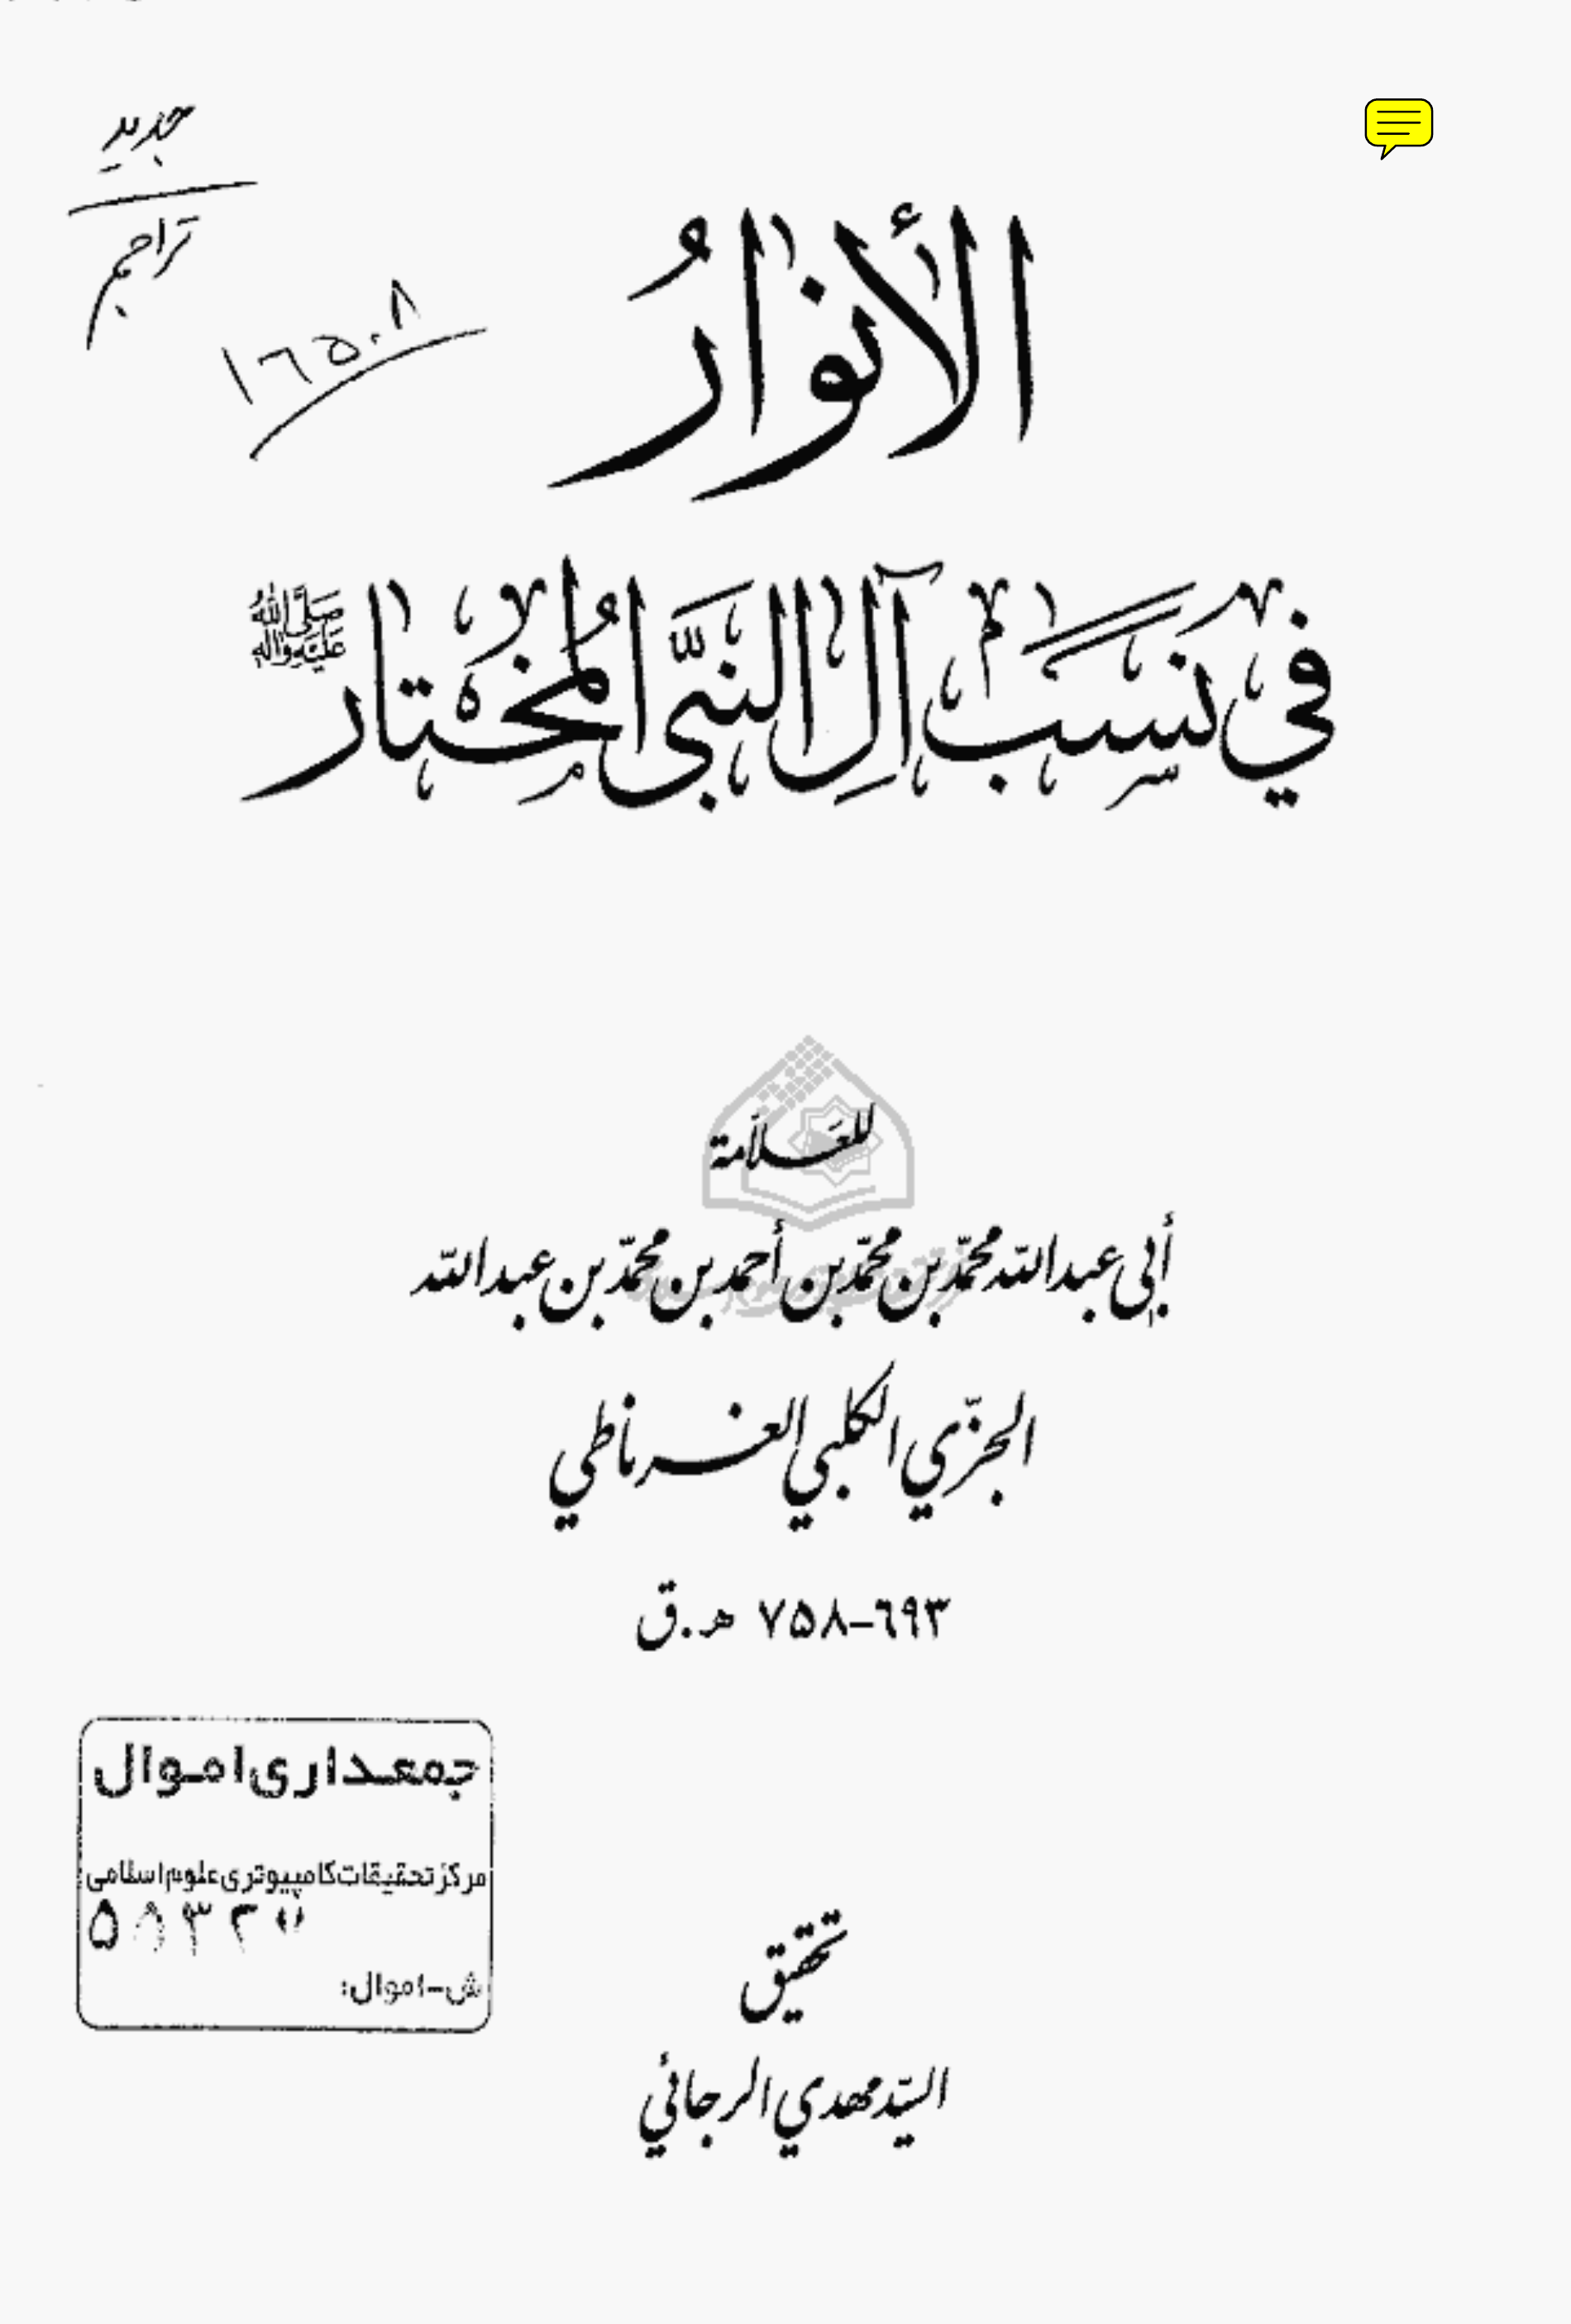 جديد
تراجم
١٦٥٠٨
الأنوارُ
في نسب آلِ النبّي المُختار
صلّى الله عليه وآله
للعلّامة
أبي عبدالله محمّد بن محمّد بن أحمد بن محمّد بن عبدالله
الجزّي الكلبي الغرناطي
٦٩٣-٧٥٨ هـ.ق
جمعداری اموال
مرکز تحقیقات کامپیوتری علوم اسلامی
ش-اموال:
تحقيق
السيّد مهدي الرجائي